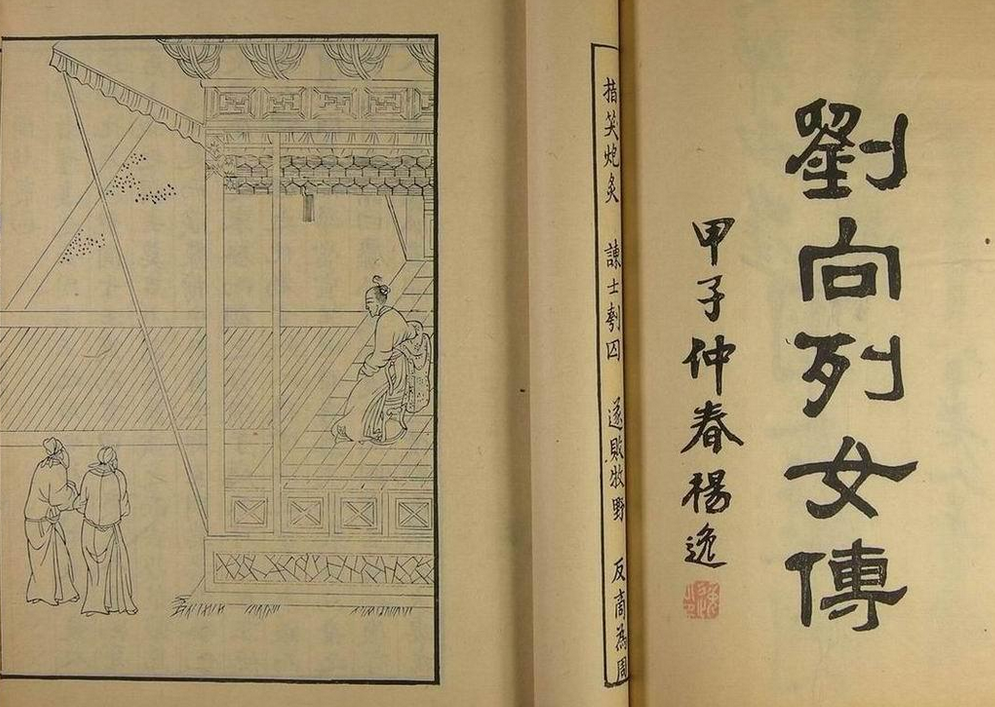 劉向列女傳
甲子仲春楊逸
指笑炮炙 諫士刳囚 遂敗牧野 反商為周